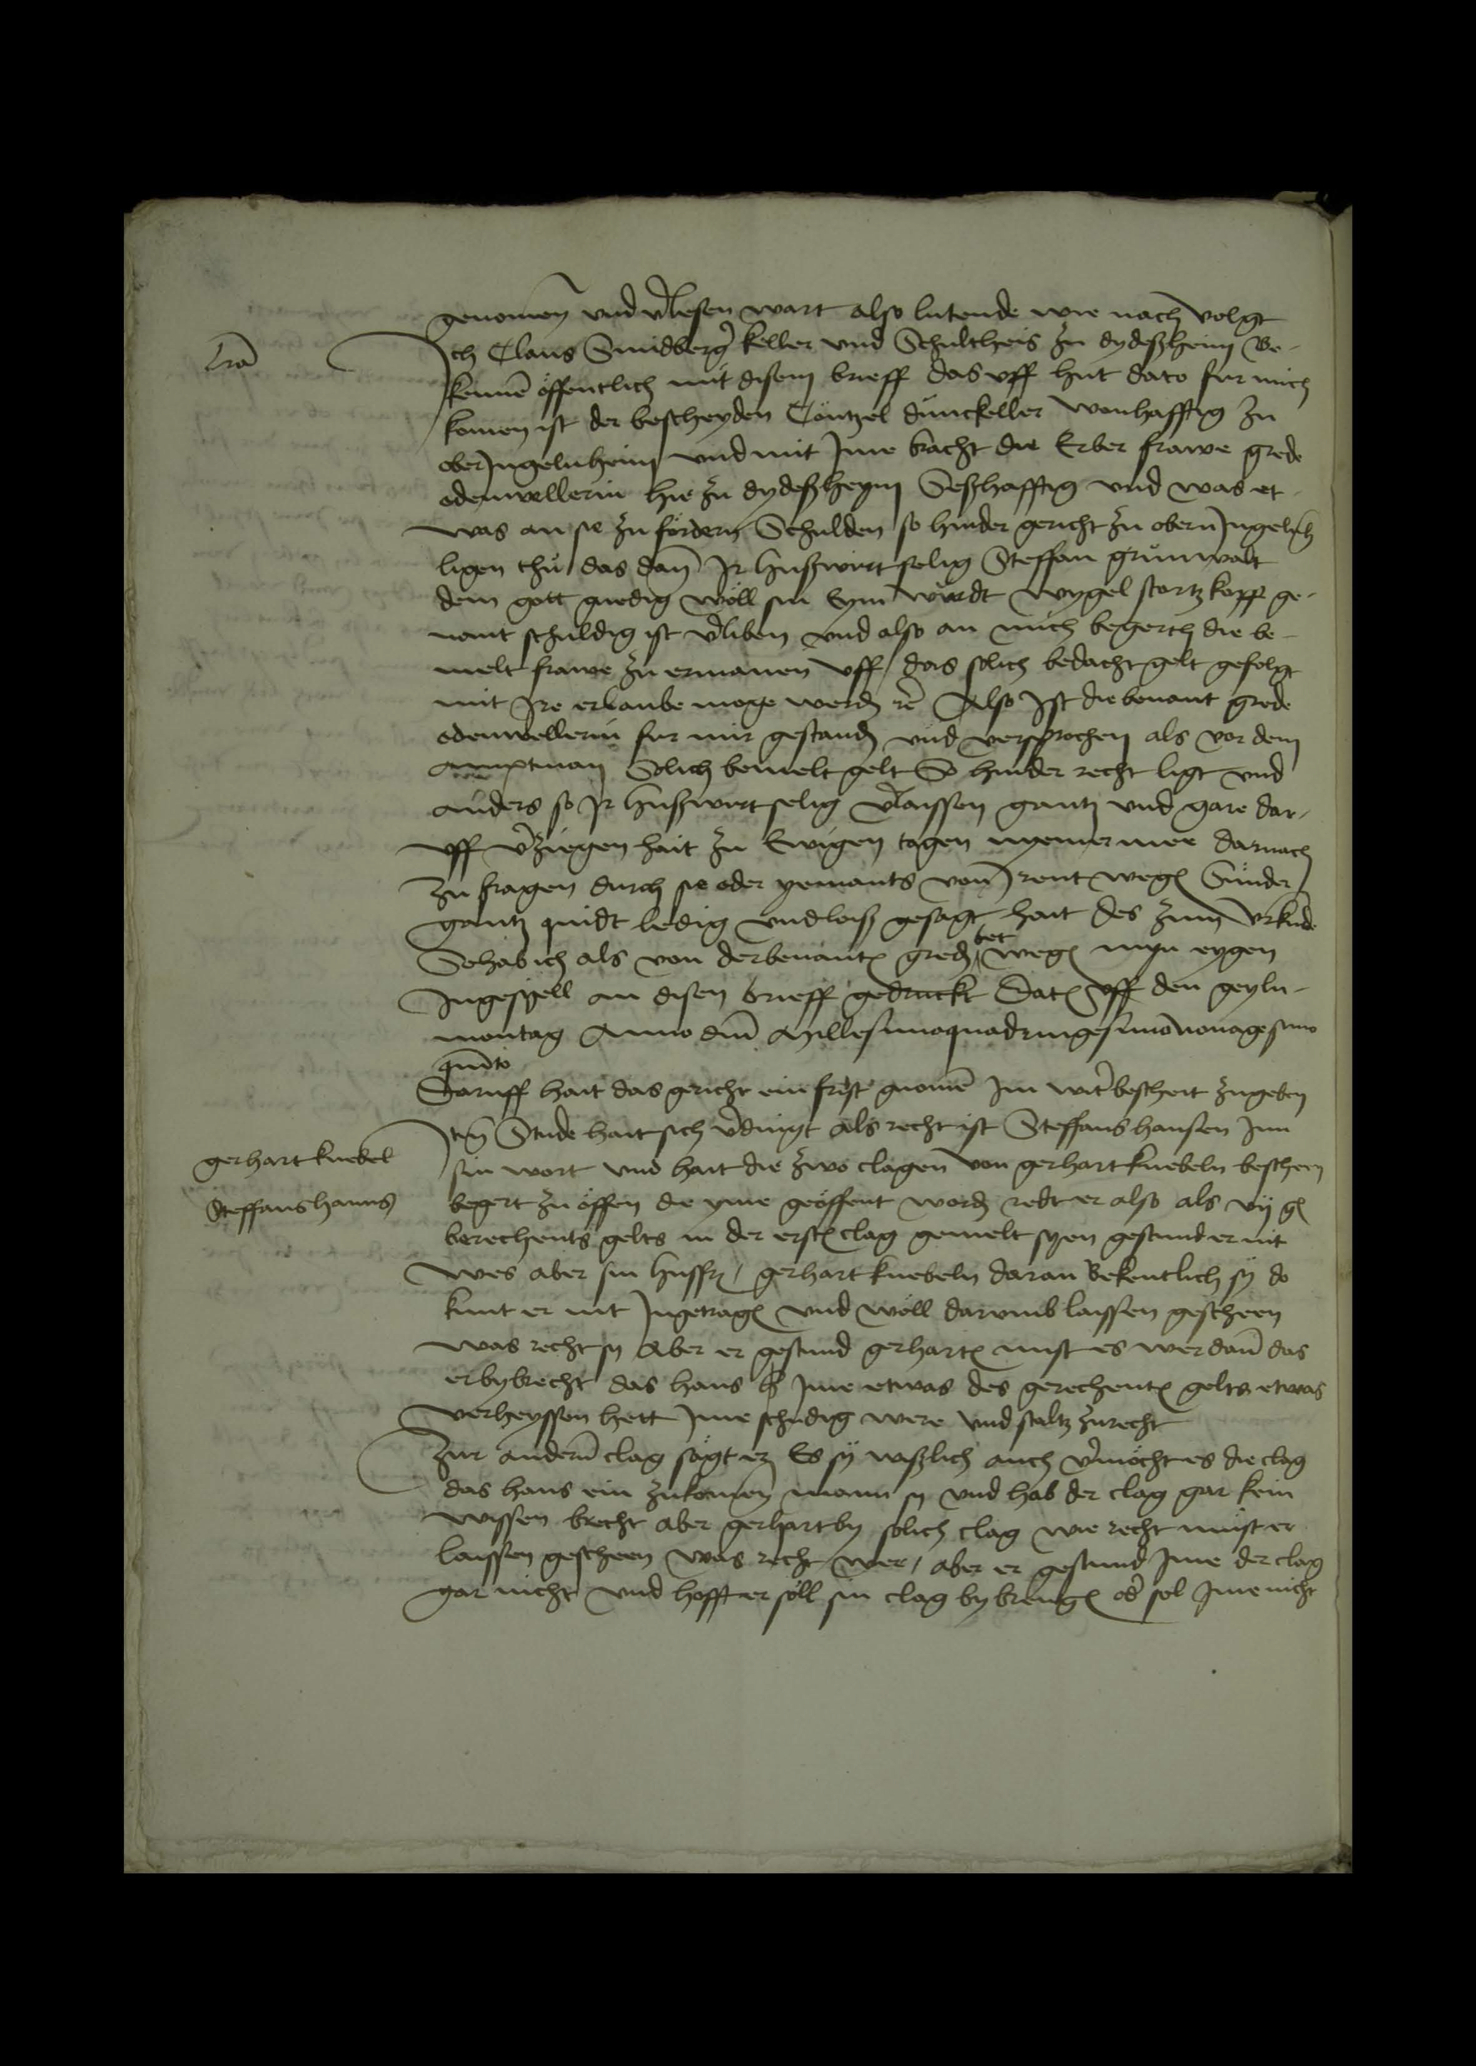 genomen und v'lesen wart also lutende wie nach volgt
l'ra
Ich Claus Smidberg' keller und Schultheis zu dydeßheim Be-
kenne öffentlich mit disem brieff das uff hut dato fur mich
komen ist der bescheyden Contzel dunckeller wonhafftig zu
ober Ingelnheim und mit Ime bracht die Erber frawe grede
odenwellerin hie zu dydeßheym Seßhafftig und was et-
was an sie zu fordern Schulden so hinder gericht zu obern Ingelnh
ligen thu das dan Ir hußwirt selig Steffan grunwalt
dem gott gnedig wöll sin Eym wurdt wygel stortzkopp ge-
nant schuldig ist v'liben und also an mich begerth die be-
melt frawe zu ermanen uff das solich bedacht gelt gefolgt
mit Ire erlaube moge werd rc Also Ist die benant grede
odenwellerin fur mir gestand und versprochen als vor dem
amptman Solich bemelt gelt So hinder recht ligt und
anders so Ir hußwirt selig v'lassen gantz und gare dar-
uff v'ziegen hait zu Ewigen tagen nyemer mee darnach
zu fragen durch sie oder yemants von Irent weg Sunder
gantz quidt ledig und loiß gesagt hait des zum urkunde
So hab ich als von der benant gred bet weg myn eygen
Ingesygell an disen brieff gedruckt Dat uff den geyln-
montag Anno dm Millesimoquadringesimononagesimo
quinto
Daruff hait das gericht ein friste gnomen Im wit' bescheit zugeben
gerhart knebel
Steffans hanns
Itm Stude hait sich v'dingt als recht ist Steffans hansen Inn
sin wort und hait die zwo clagen von gerhart knebeln bescheen
begert zu öffen die yme geöffent word redt er also als vij g
berechents gelts in der erst clag gemelt syen gestund er nit
wes aber sin hussfr gerhart knebeln daran Bekentlich sy do
kunt er nit Ingetrag und wöll darumb laissen gescheen
was recht sy Aber er gestund gerhart nust es wer dan das
er bybrecht das hans Ime etwas des gerechent gelts etwas
verheyssen hett Ime schudig were und staltz zu recht
Zur andern clag sagt er Es sy wißlich auch v'mocht es die clag
das hans ein zukomen mann sy und hab der clag gar kein
wissen brecht aber gerhart by solich clag wie recht must er
laissen gescheen was recht wer, aber er gestund Ime der clag
gar nicht und hofft er söll sin clag by breng ad' sol Ime nicht